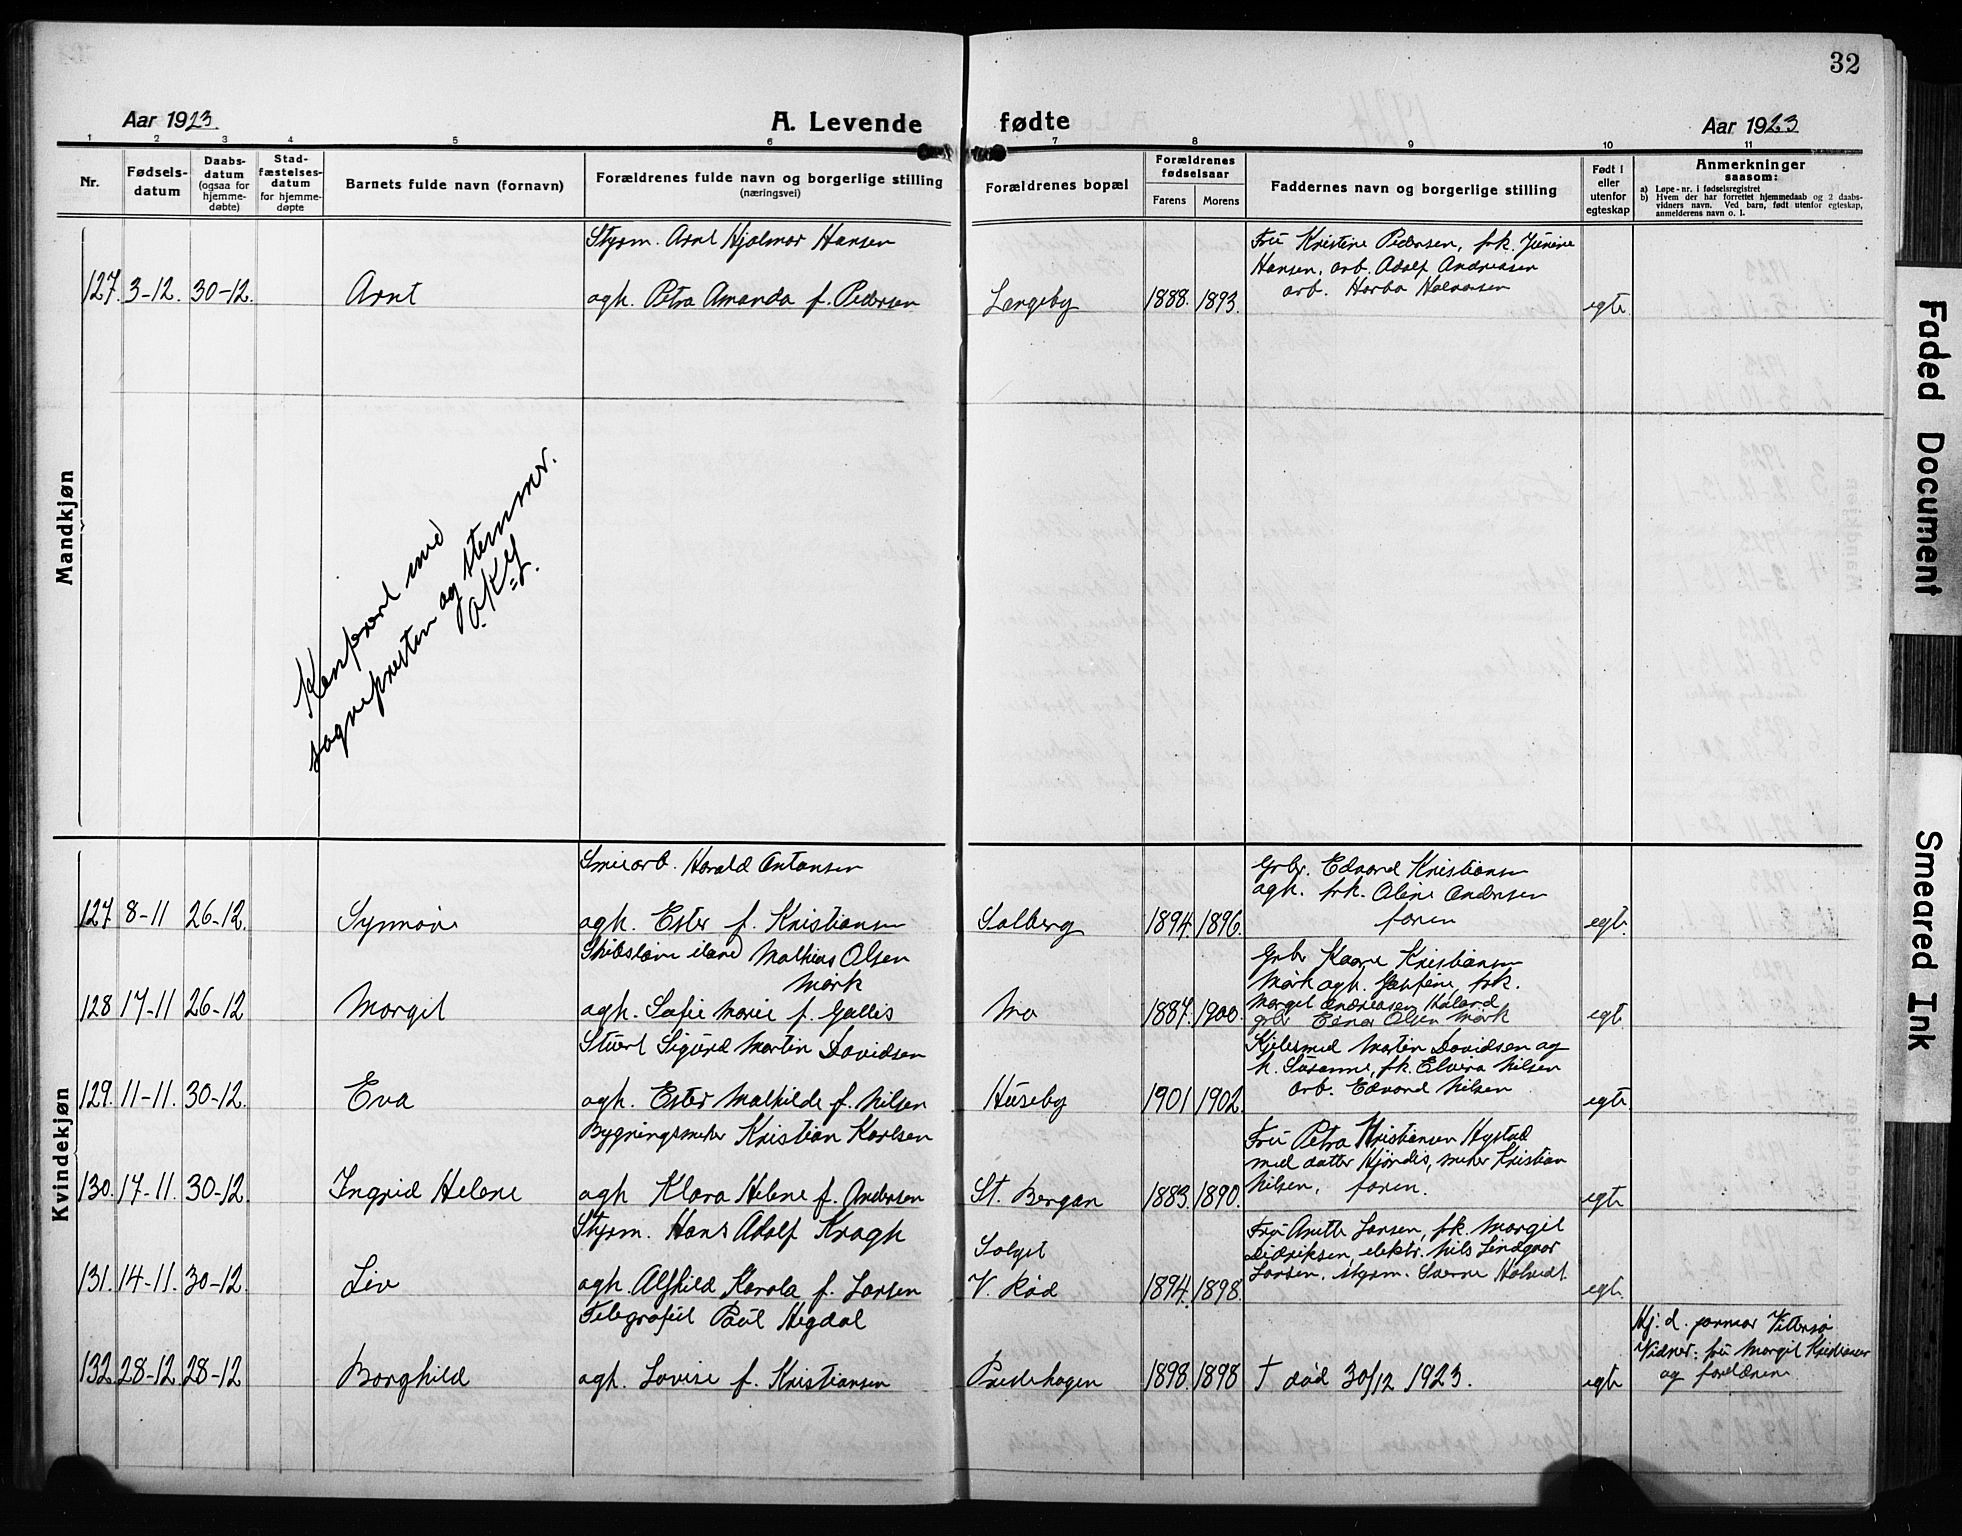 32
Aar 1923.
A. Levende fødte
Aar 1923
1 2 3 4 5 6 7 8 9 10 11
Nr.
Fødsels-
datum
Daabs-
datum
(ogsaa for
hjemme-
døbte)
Stad-
fæstelses-
datum
for hjemme-
døpte
Barnets fulde navn (fornavn)
Forældrenes fulde navn og borgerlige stilling
(næringsvei)
Forældrenes bopæl
Forældrenes
fødselsaar
Farens
Morens
Faddernes navn og borgerlige stilling
Født i
eller
utenfor
egteskap
Anmerkninger
saasom:
a) Løpe-nr. i fødselsregistret
b) Hvem der har forrettet hjemmedaab og 2 daabs-
vidners navn. Ved barn, født utenfor egteskap,
anmelderens navn o. l.
Mandkjøn
Styrm. Arnt Hjalmar Hansen
127. 3-12. 30-12. Arnt agh. Petra Amanda f. Pedersen Langeby 1888. 1893.
Fru Kristine Pedersen, frk.
Hansen, arb. Adolf Andreasen
arb. Halvorsen
egte
Konferert med
sognepresten og stemmer.
Kvindekjøn
Smiarb. Harald Antonsen
127 8-11 26-12. Synnøve agh. Ester f. Kristiansen Solberg 1894. 1896.
Grbr. Edvard Kristiansen
agh. frk. Oline Andersen
faren
egte.
Mathias Olsen
Mørk
128 17-11 26-12 Margit agh. Sofie Marie f. Gallis Mo 1887. 1900.
Grbr Kaare Kristiansen
Mørk agh. frk.
Margit Andreasen
grbr Olsen Mørk
egte
Stuert Sigurd Martin Davidsen
129. 11-11. 30-12. Eva agh. Ester Mathilde f. Nilsen Huseby 1901 1902.
Kjelesmed Martin Davidsen og
h. Susanne, frk. Elvira Nilsen
arb. Edvard Nilsen
egte
Bygningsmester Kristian Karlsen
130. 17-11. 30-12. Ingrid Helene agh Klara Helene f. Andersen St. Bergan 1883. 1890.
Fru Petra Kristiansen Nystad
med datter Hjørdis, Kristian
Nilsen, faren.
egte
Styrm. Hans Adolf Kragh
131. 14-11. 30-12 Liv agh. Alfhild Karola f. Larsen
Solgit
V. Rød 1894. 1898.
Fru Anette Larsen, frk. Margit
Didriksen, elektr. Nils Lindgaar
Larsen, styrm. Sverre
egte.
Telegrafist Paul Hegdal
132. 28-12. 28-12 Borghild agh. Lovise f. Kristiansen Predehagen 1898. 1898 † død 30/12 1923. egte
Hj. d. jormor Vittersø
Vidner: fru Margit Kristiansen
og forældrene
Faded Document
Smeared Ink